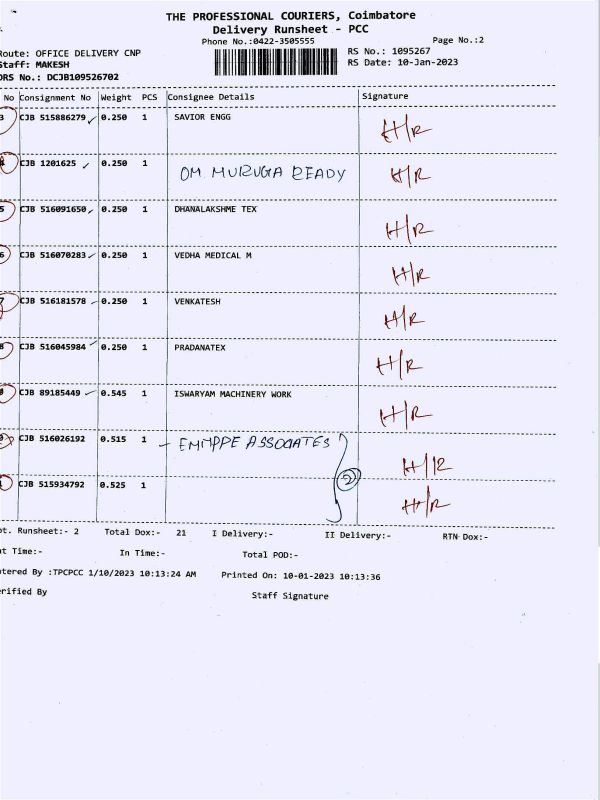 THE PROFESSIONAL COURIERS, Coimbatore
Delivery Runsheet - PCC
Phone No.:0422-3505555 Page No.:2
Route: OFFICE DELIVERY CNP RS No.: 1095267
Staff: MAKESH RS Date: 10-Jan-2023
DRS No.: DCJB109526702
No Consignment No Weight PCS Consignee Details Signature
3 CJB 515886279 ✓ 0.250 1 SAVIOR ENGG H/R
4 CJB 1201625 ✓ 0.250 1 OM MURUGA READY H/R
5 CJB 516091650 ✓ 0.250 1 DHANALAKSHME TEX H/R
6 CJB 516070283 ✓ 0.250 1 VEDHA MEDICAL M H/R
7 CJB 516181578 ✓ 0.250 1 VENKATESH H/R
8 CJB 516045984 ✓ 0.250 1 PRADANATEX H/R
9 CJB 89185449 ✓ 0.545 1 ISWARYAM MACHINERY WORK H/R
CJB 516026192 0.515 1 - ASSOCIATES H/R
2
CJB 515934792 0.525 1 H/R
ot. Runsheet:- 2 Total Dox:- 21 I Delivery:- II Delivery:- RTN Dox:-
ut Time:- In Time:- Total POD:-
ntered By :TPCPCC 1/10/2023 10:13:24 AM Printed On: 10-01-2023 10:13:36
erified By Staff Signature